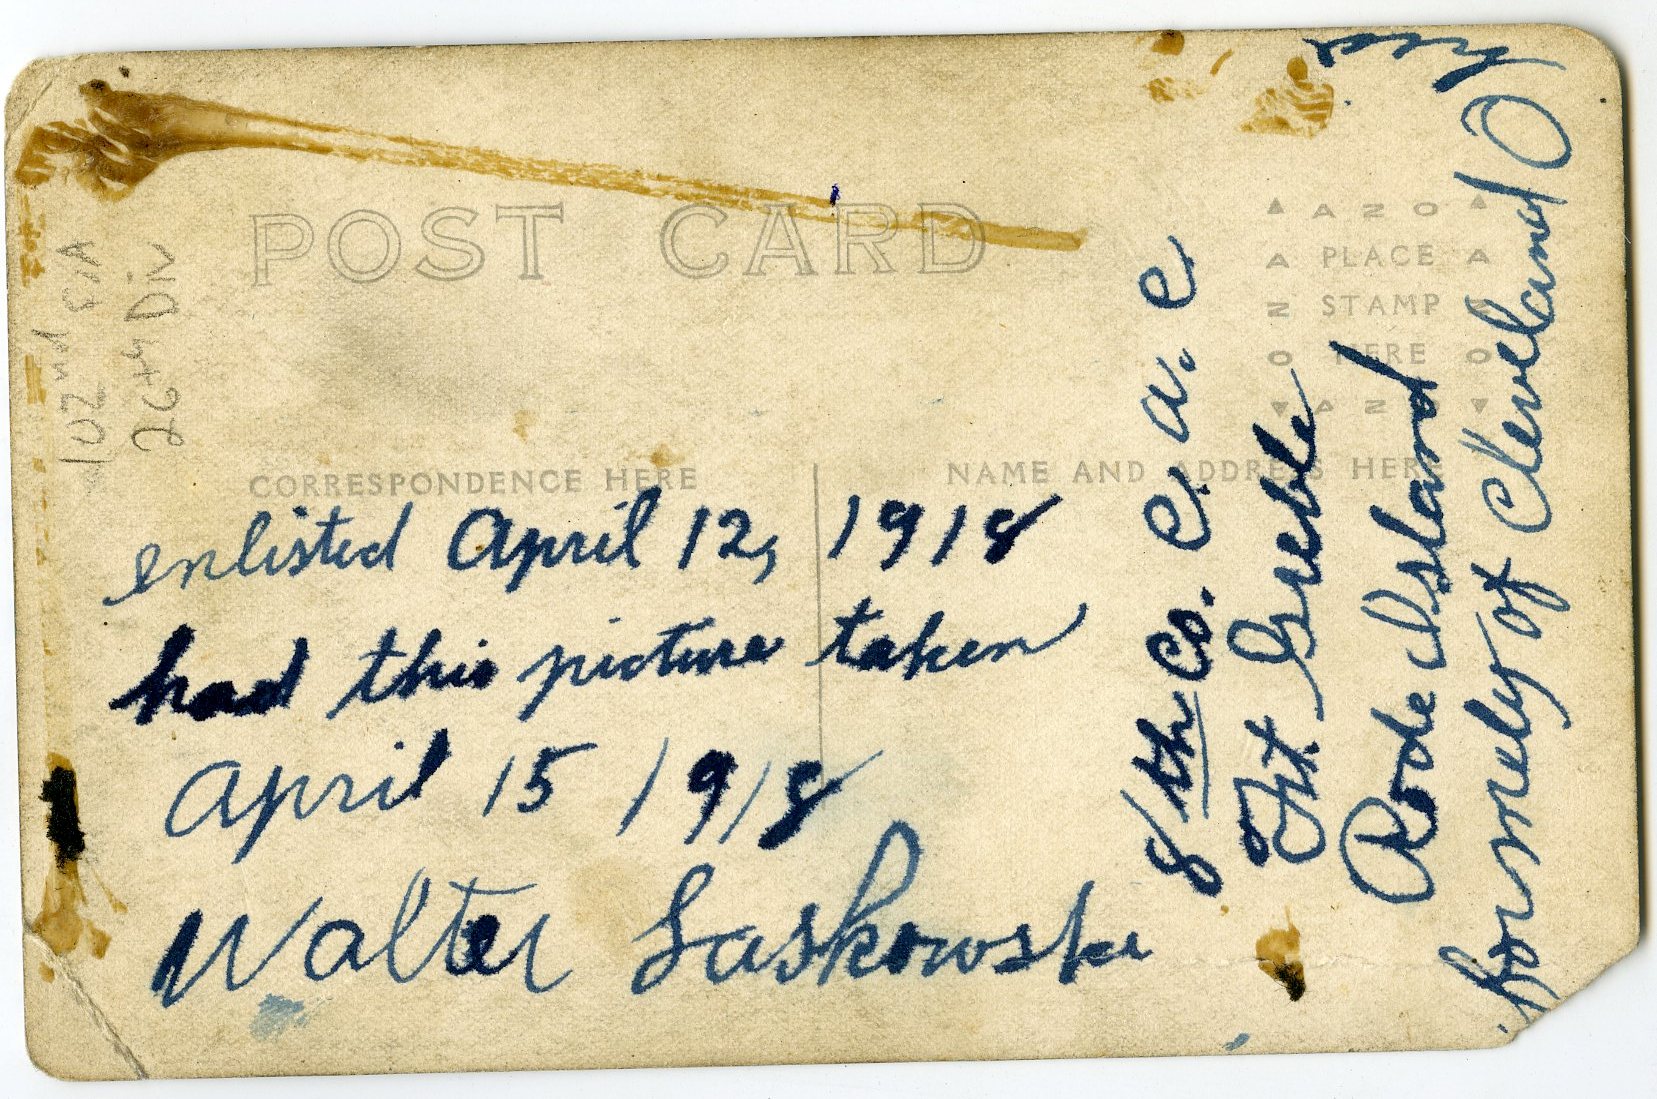 102nd F/A
26th Div
POST CARD
CORRESPONDENCE HERE
NAME AND ADDRESS HERE
AZO
PLACE
STAMP
HERE
AZO
AZO
AZO
enlisted April 12, 1918
had this picture taken
April 15 1918
Walter Laskowski
8th Co. C. a. C
Ft. Greble
Rode Island
formely of Cleveland O